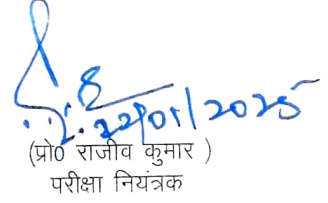 22/01/2025
(प्रो0 राजीव कुमार )
परीक्षा नियंत्रक